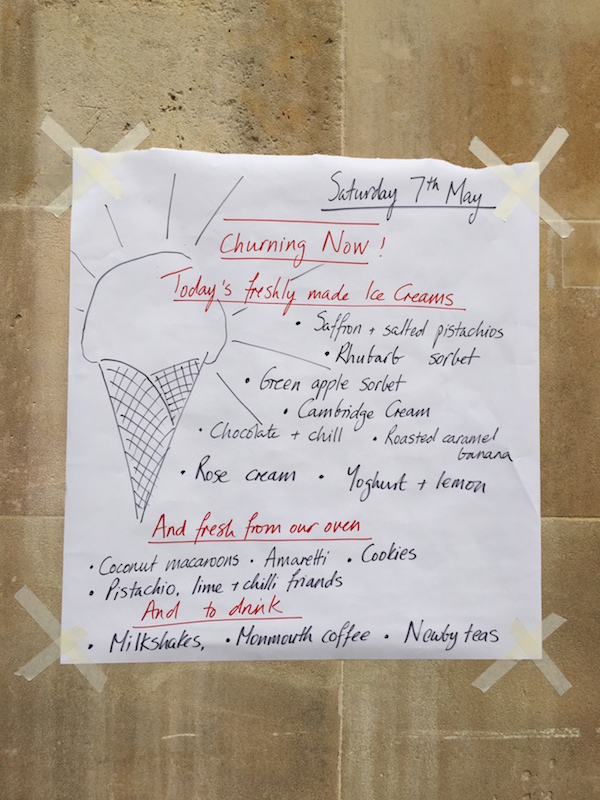 Saturday 7th May
Churning Now!
Today's freshly made Ice Creams
• Saffron + salted pistachios
• Rhubarb sorbet
• Green apple sorbet
• Cambridge Cream
• Chocolate + chill • Roasted caramel
banana
• Rose cream • Yoghurt + lemon
And fresh from our oven
• Coconut macaroons • Amaretti • Cookies
• Pistachio, lime + chilli friands
And to drink
• Milkshakes, • Monmouth coffee • Newby teas